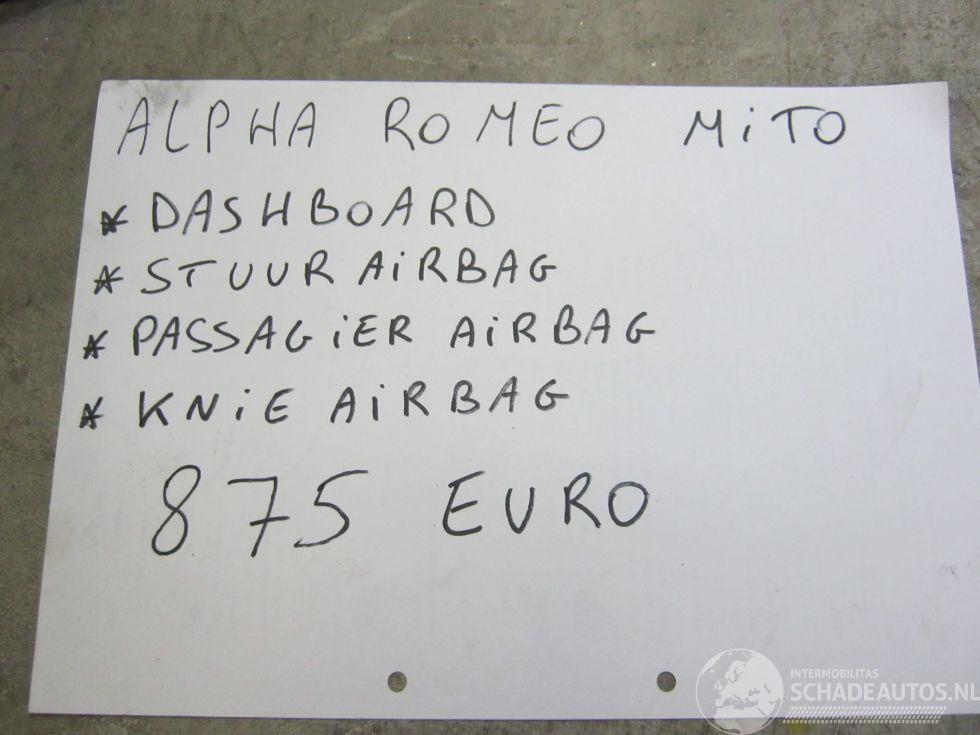 ALPHA ROMEO MiTO
* DASHBOARD
* STUUR AiRBAG
* PASSAGiER AiRBAG
* KNiE AiRBAG
875 EURO
INTERMOBILITAS
SCHADEAUTOS.NL